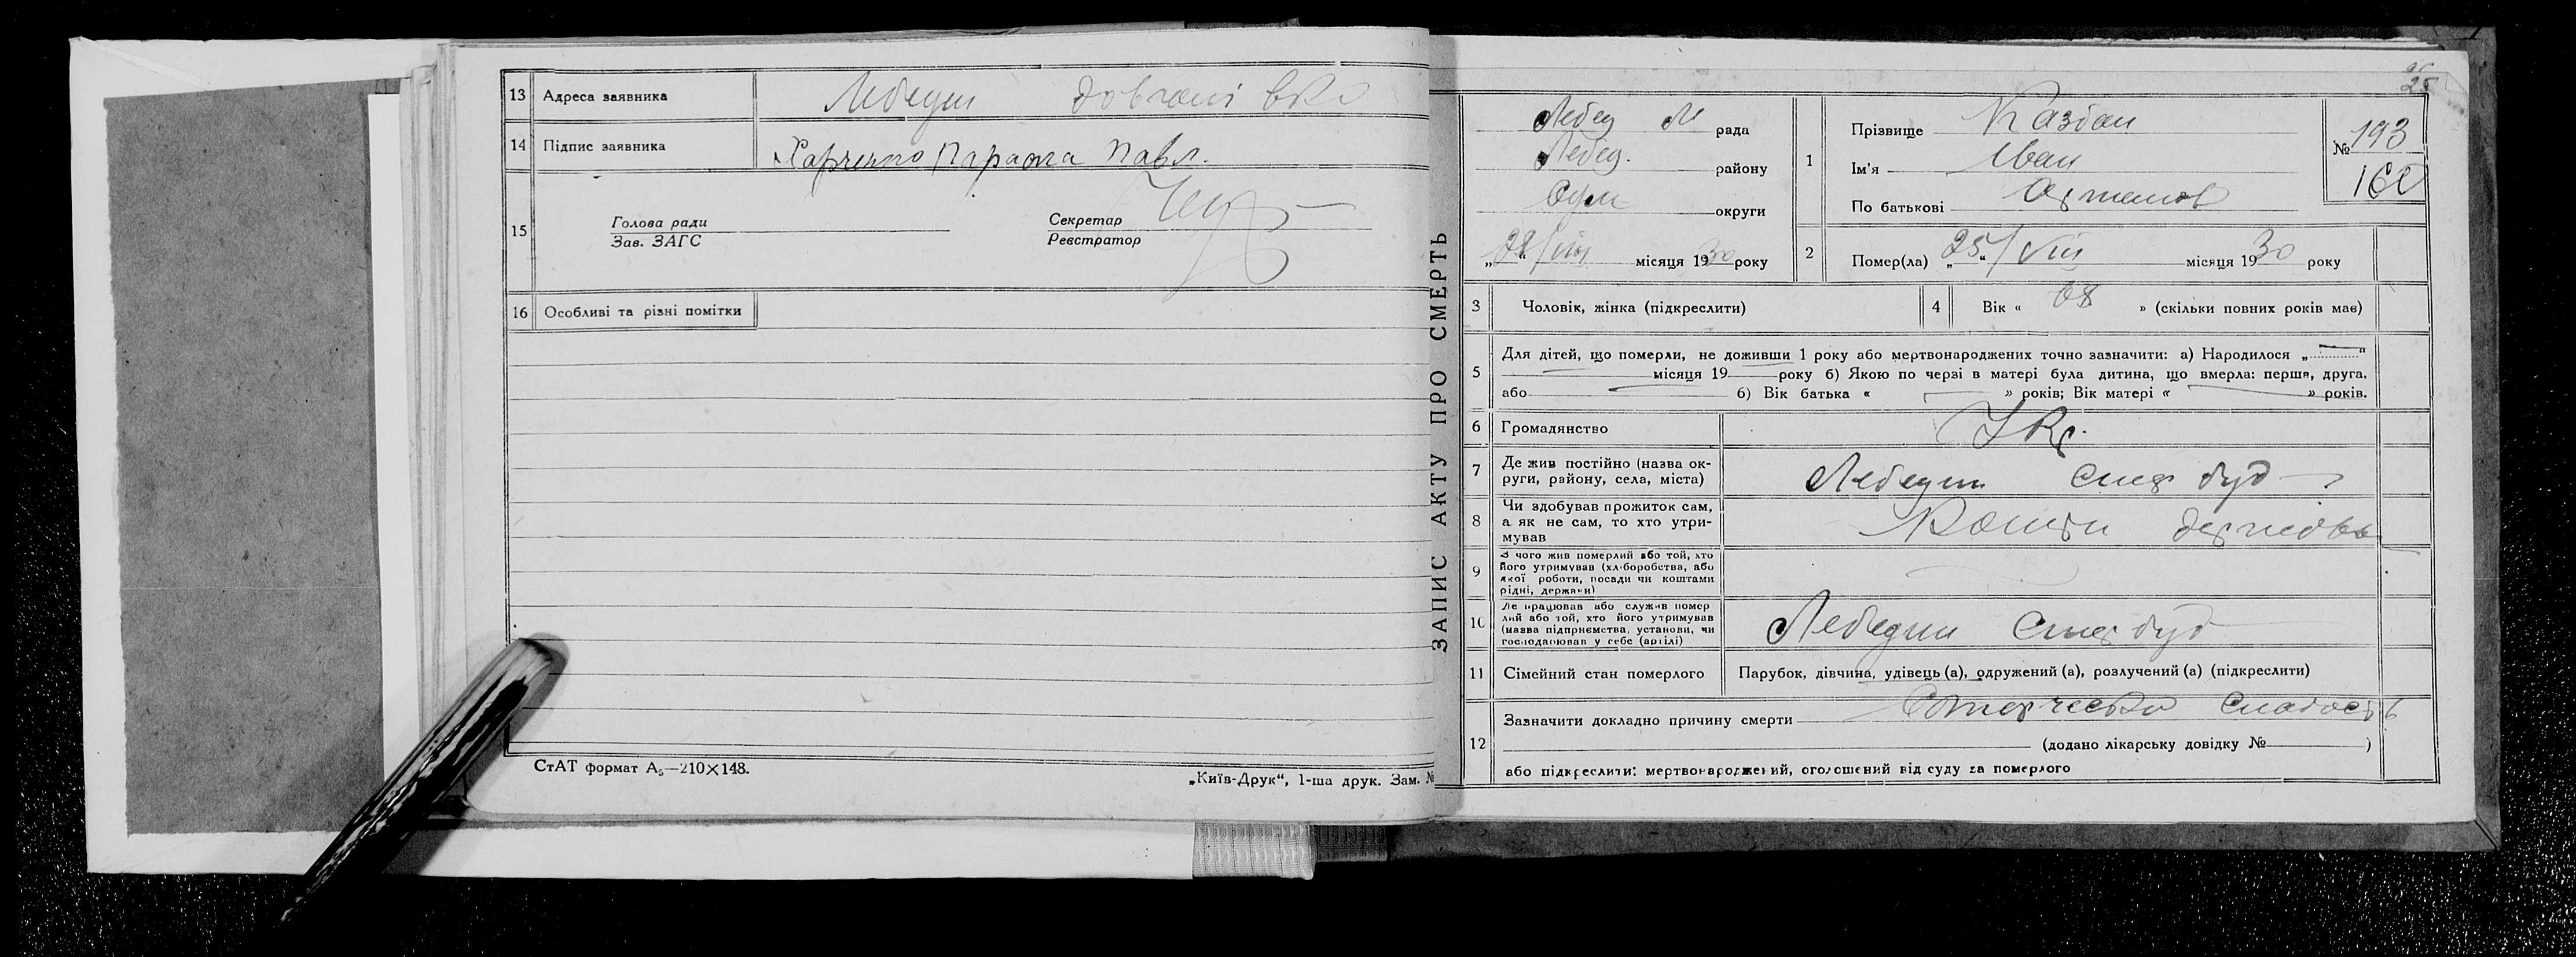 13 Адреса заявника Лебедин
14 Підпис заявника Харченко Параска Павл.
15 Голова ради
Зав. ЗАГС
Секретар
Реєстратор
16 Особливі та різні помітки
СтАТ формат А₅—210×148.
„Київ-Друк“, 1-ша друк. Зам. №
ЗАПИС АКТУ ПРО СМЕРТЬ
25
Лебед М рада
Лебед. району
Сум округи
„28/VIII місяця 1930 року
1 Прізвище Казбан
Ім'я Іван
По батькові Артемов
№ 193
162
2 Помер(ла) „25“/VIII місяця 1930 року
3 Чоловік, жінка (підкреслити)
4 Вік « 68 » (скільки повних років мав)
5 Для дітей, що померли, не доживши 1 року або мертвонароджених точно зазначити: а) Народилося „ “
місяця 19 року б) Якою по черзі в матері була дитина, що вмерла: перша, друга,
або б) Вік батька « » років; Вік матері « » років.
6 Громадянство Укр.
7 Де жив постійно (назва ок-
руги, району, села, міста) Лебедин
8 Чи здобував прожиток сам,
а як не сам, то хто утри-
мував Кошти
9 З чого жив померлий або той, хто
його утримував (хліборобства, або
якої роботи, посади чи коштами
рідні, держави)
10 Де працював або служив помер
лий або той, хто його утримував
(назва підприємства, установи, чи
господарював у себе (артілі) Лебедин
11 Сімейний стан померлого Парубок, дівчина, удівець (а), одружений (а), розлучений (а) (підкреслити)
12 Зазначити докладно причину смерти Старческа слабость
(додано лікарську довідку № )
або підкреслити: мертвонароджений, оголошений від суду за померлого